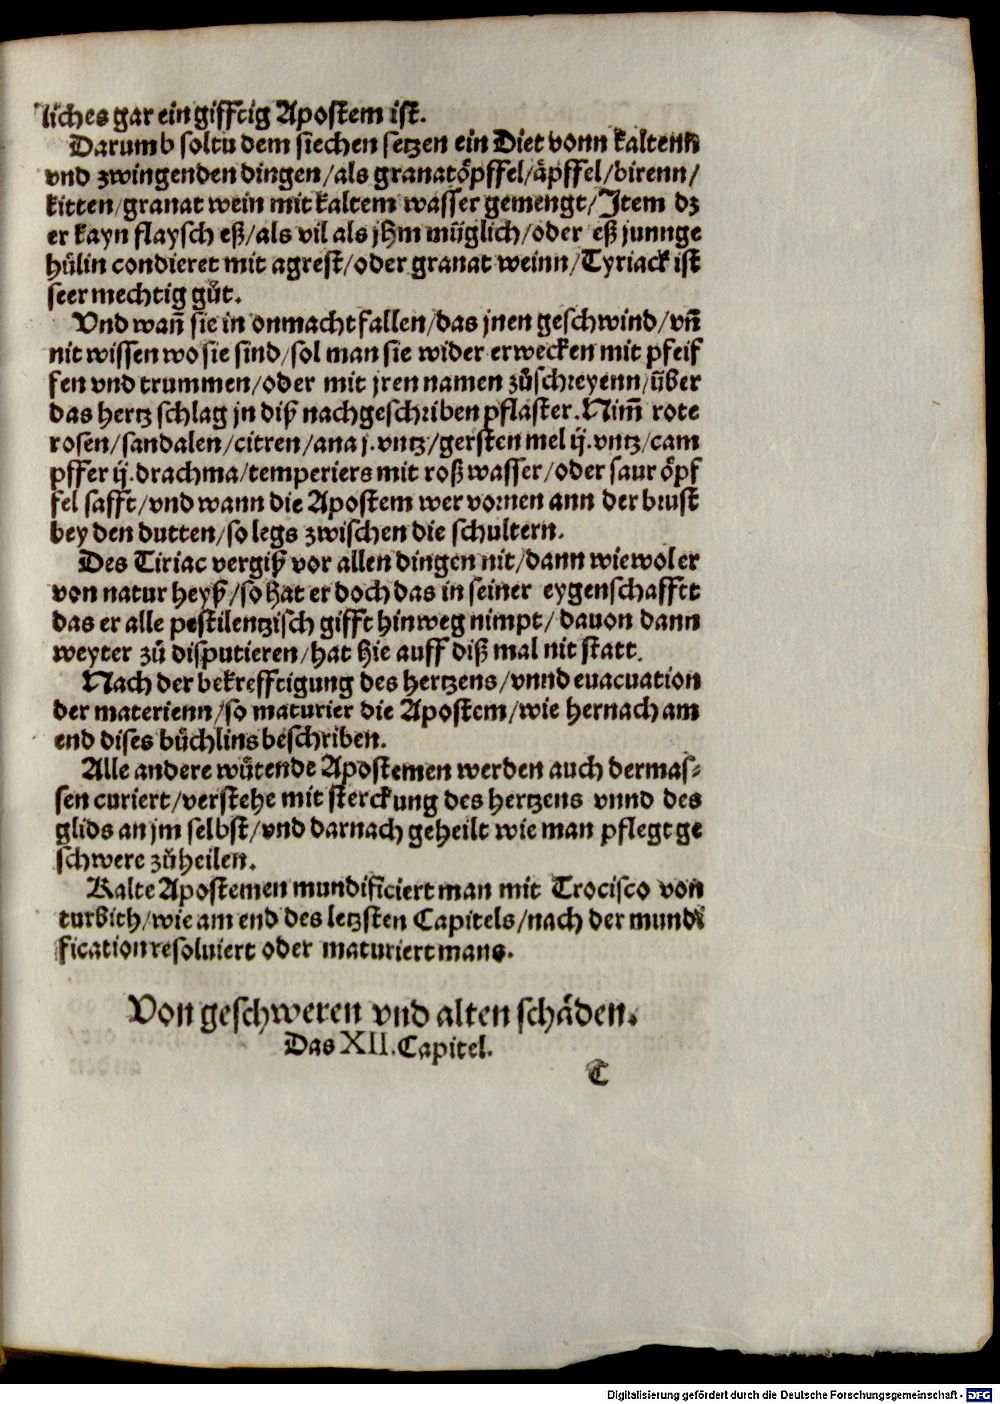 liches gar ein gifftig Apostem ist.
Darumb soltu dem siechen setzen ein Diet vonn kaltenn
vnd zwingenden dingen/als granatöpffel/äpffel/birenn/
kitten/granat wein mit kaltem wasser gemengt/Item dz
er kayn flaysch eß/als vil als jhm müglich/oder eß junnge
hülin condieret mit agrest/oder granat weinn/Tyriack ist
seer mechtig gůt.
Vnd wañ sie in onmacht fallen/das jnen geschwind/vñ
nit wissen wo sie sind/sol man sie wider erwecken mit pfeif
fen vnd trummen/oder mit jren namen zůschreyenn/über
das hertz schlag jn diß nachgeschriben pflaster. Nim̃ rote
rosen/sandalen/citren/ana j. vntz/gersten mel ij. vntz/cam
pffer ij. drachma/temperiers mit roß wasser/oder saur öpf
fel safft/vnd wann die Apostem wer vornen ann der brust
bey den dutten/so legs zwischen die schultern.
Des Tiriac vergiß vor allen dingen nit/dann wiewol er
von natur heyß/so hat er doch das in seiner eygenschafftt
das er alle pestilentzisch gifft hinweg nimpt/dauon dann
weyter zů disputieren/hat hie auff diß mal nit statt.
Nach der bekrefftigung des hertzens/vnnd euacuation
der materienn/so maturier die Apostem/wie hernach am
end dises bůchlins beschriben.
Alle andere wůtende Apostemen werden auch dermas-
sen curiert/verstehe mit sterckung des hertzens vnnd des
glids an jm selbst/vnd darnach geheilt wie man pflegt ge
schwere zůheilen.
Kalte Apostemen mundificiert man mit Trocisco von
turbith/wie am end des letzsten Capitels/nach der mundi
fication resoluiert oder maturiert mans.
Von geschweren vnd alten schäden.
Das XII. Capitel.
C
Digitalisierung gefördert durch die Deutsche Forschungsgemeinschaft - DFG